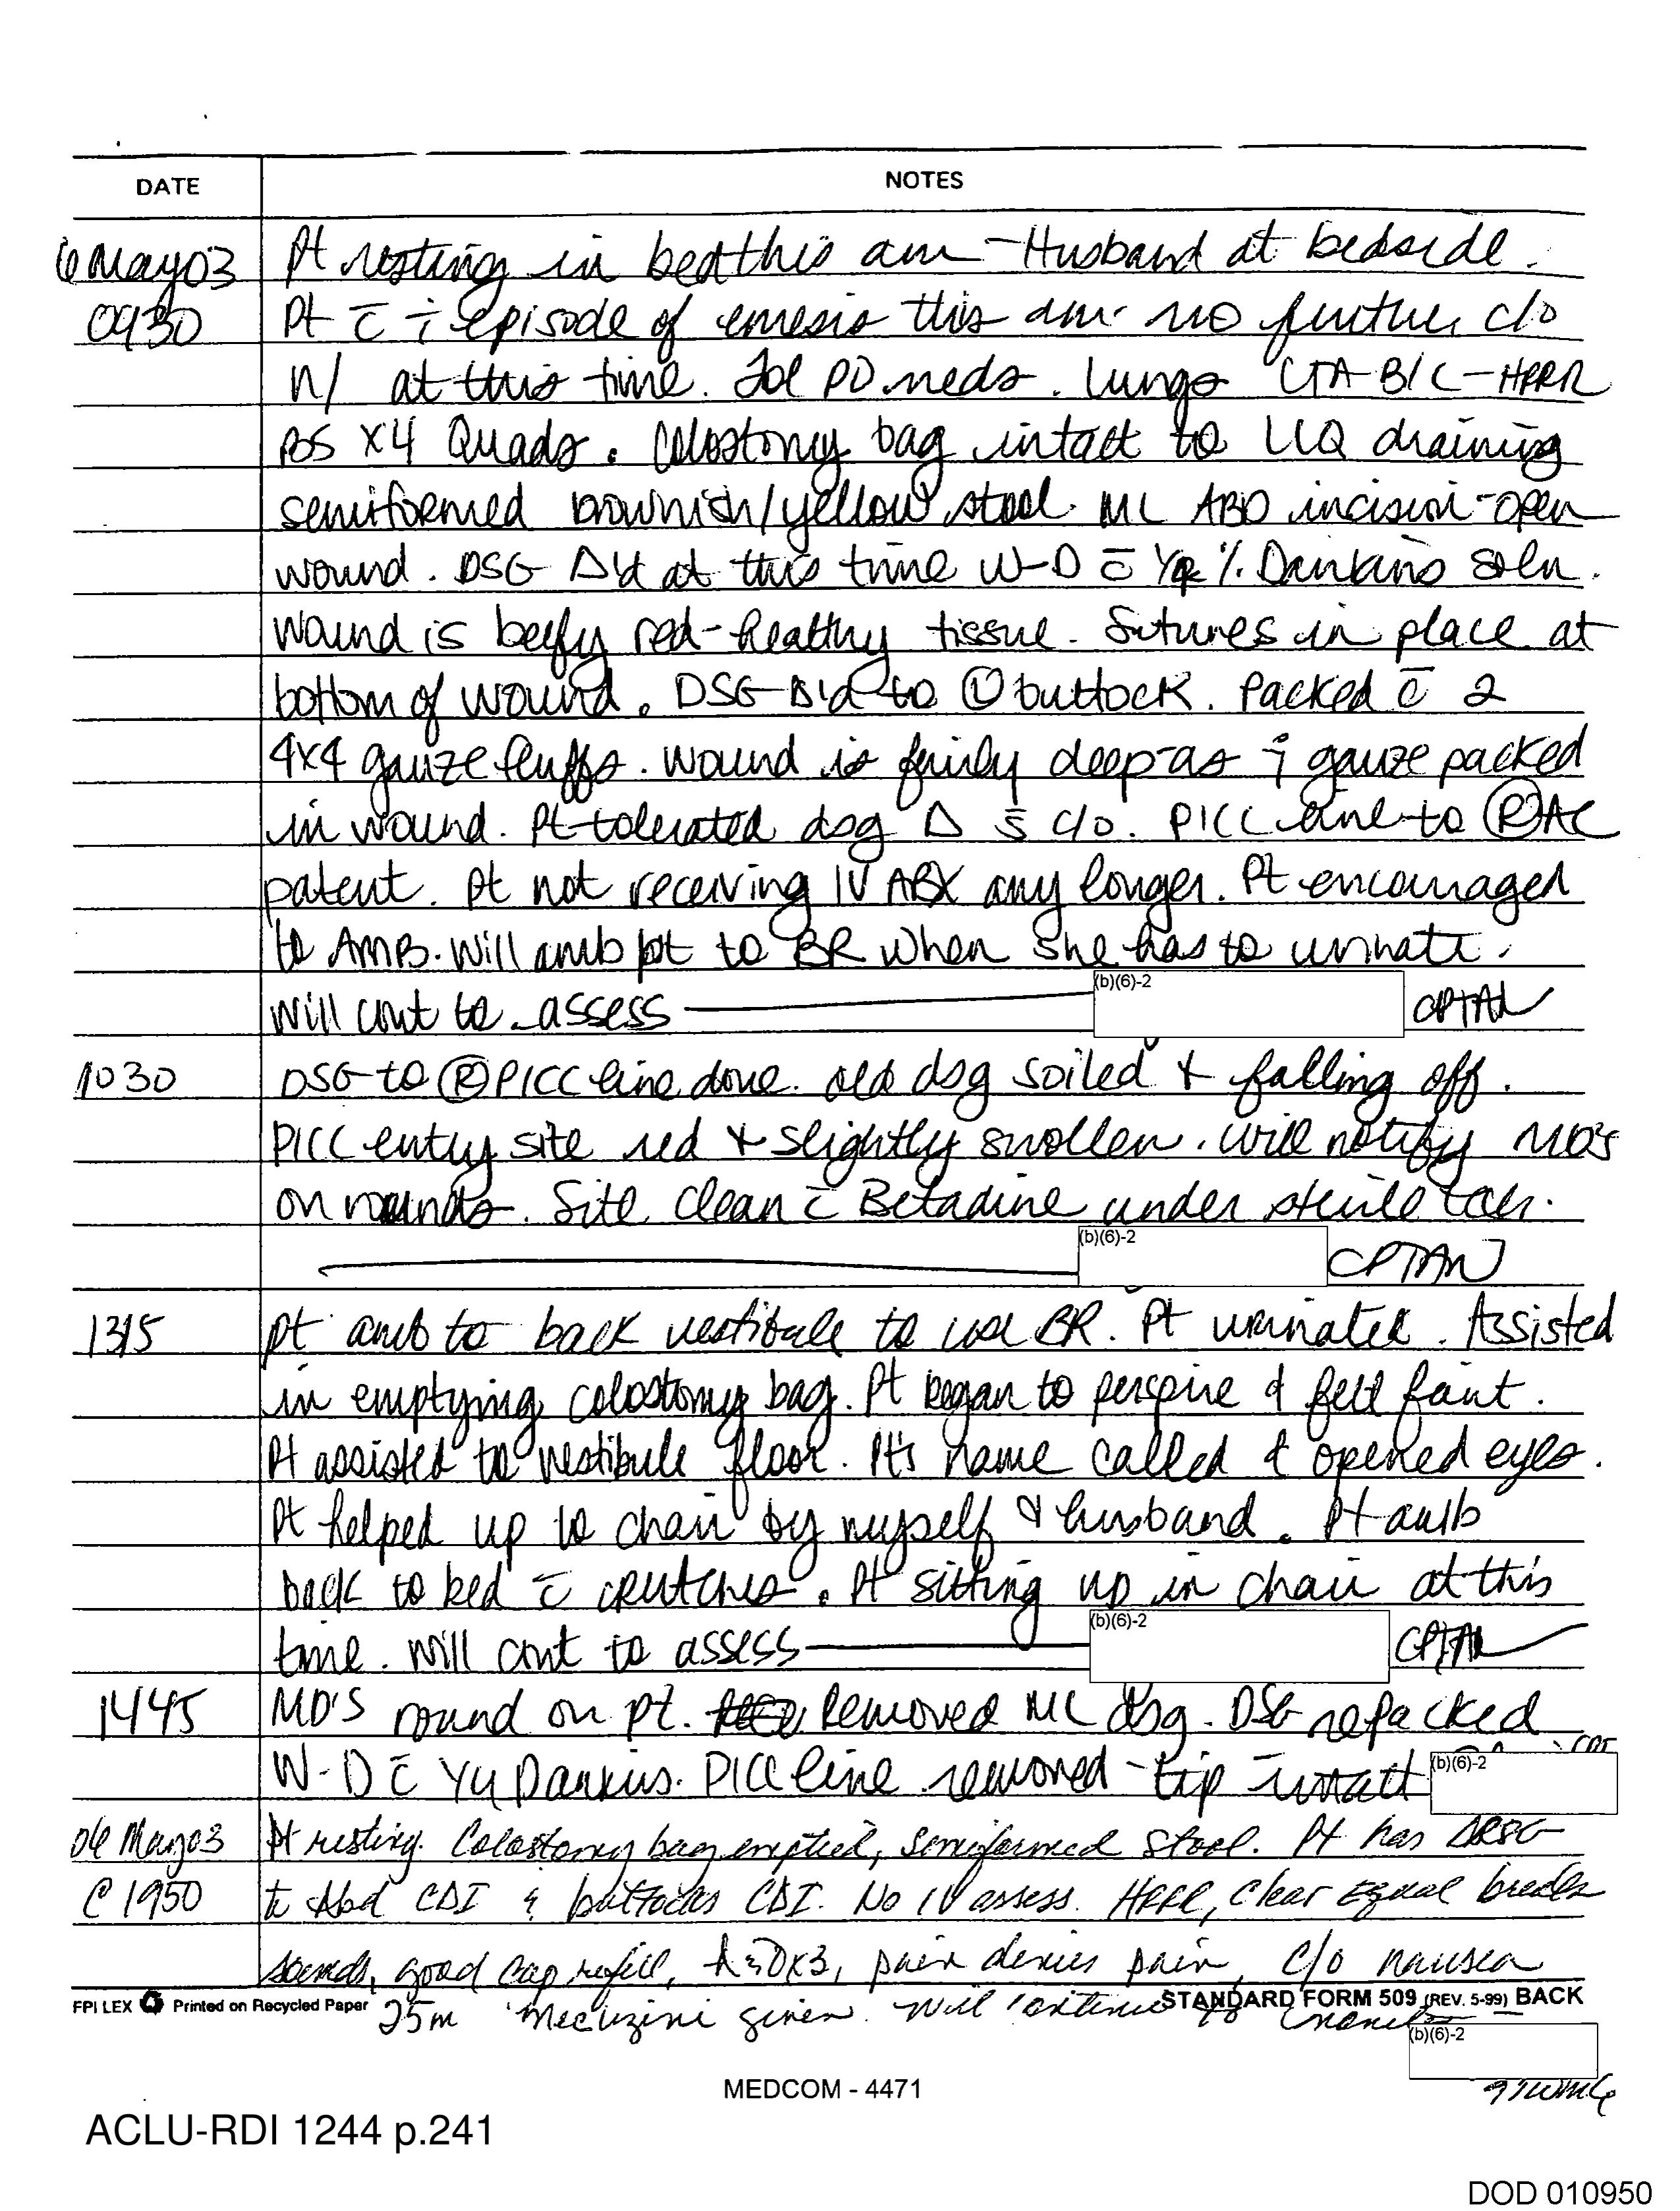 DATE NOTES
6 May 03 Pt resting in bed this am - Husband at bedside.
0930 Pt c̄ i episode of emesis this am. no further c/o
N/ at this time. Tol PO meds. Lungs CTA B/L - HRRR
BS x4 Quads. Colostomy bag intact to LLQ draining
semiformed brownish/yellow stool. ML ABD incision - open
wound. DSG Δ'd at this time W-D c̄ % Dankins soln.
Wound is beefy red - healthy tissue. Sutures in place at
bottom of wound. DSG Δ'd to Ⓛ buttock. Packed c̄ 2
4x4 gauze fluffs. Wound is fairly deep - as i gauze packed
in wound. Pt tolerated dsg Δ s̄ c/o. PICC line to Ⓡ AC
patent. Pt not receiving IV ABX any longer. Pt encouraged
to AMB. Will amb pt to BR when she has to urinate.
Will cont to assess (b)(6)-2 CPT AN
1030 DSG to Ⓡ PICC line done. old dsg soiled + falling off.
PICC entry site red + slightly swollen. Will notify MD's
on rounds. Site clean c̄ Betadine under sterile tech.
(b)(6)-2 CPT AN
1315 Pt amb to back vestibule to use BR. Pt urinated. Assisted
in emptying colostomy bag. Pt began to perspire & felt faint.
Pt assisted to vestibule floor. Pt's name called & opened eyes.
Pt helped up to chair by myself & husband. Pt amb
back to bed c̄ crutches. Pt sitting up in chair at this
time. Will cont to assess (b)(6)-2 CPT AN
1445 MD'S round on pt. Removed ML dsg. DSG repacked
W-D c̄ 1/4 Dankins. PICC line removed - tip intact (b)(6)-2 CPT
06 May 03 Pt resting. Colostomy bag emptied, semiformed stool. Pt has DRSG
@ 1950 to Abd CDI & buttocks CDI. No IV assess. HRRR, Clear Equal breath
sounds, good cap refill, A&Ox3, denies pain, c/o nausea
25m Meclizine given. Will continue to
FPI LEX Printed on Recycled Paper STANDARD FORM 509 (REV. 5-99) BACK
(b)(6)-2
91WM6
MEDCOM - 4471
ACLU-RDI 1244 p.241
DOD 010950